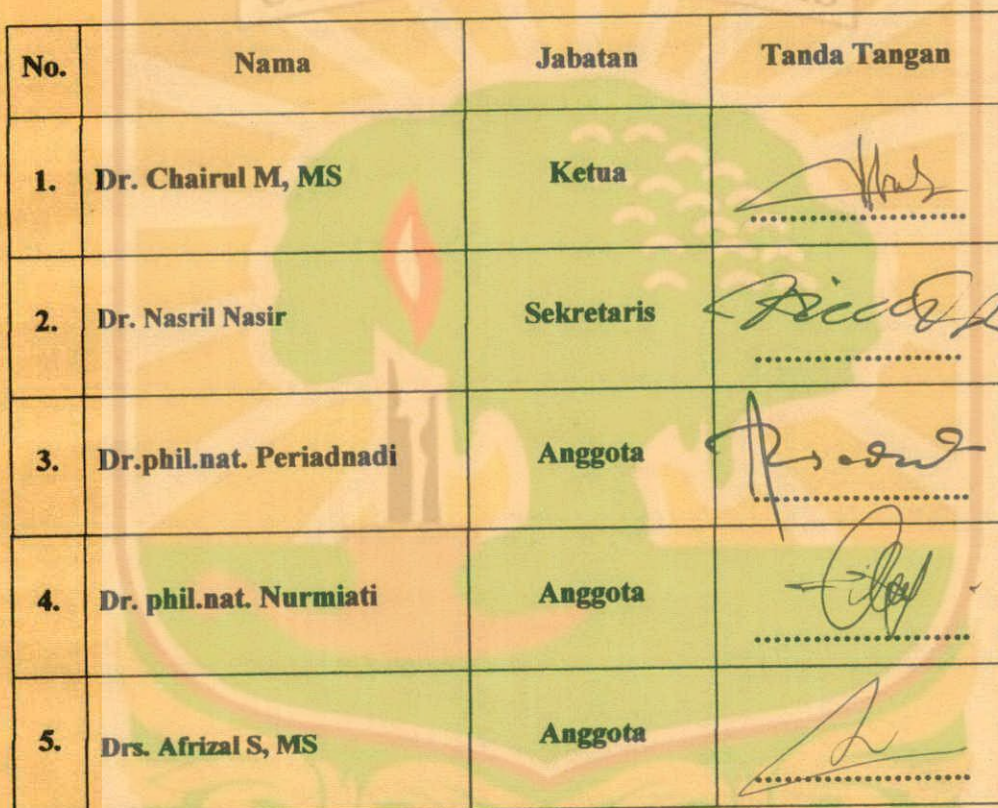 No. Nama Jabatan Tanda Tangan
1. Dr. Chairul M, MS Ketua
2. Dr. Nasril Nasir Sekretaris
3. Dr.phil.nat. Periadnadi Anggota
4. Dr. phil.nat. Nurmiati Anggota
5. Drs. Afrizal S, MS Anggota